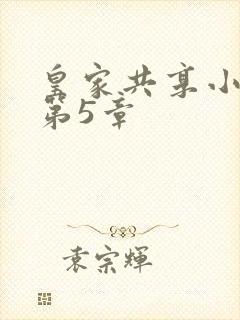 皇家共享小
第5章
袁宗輝